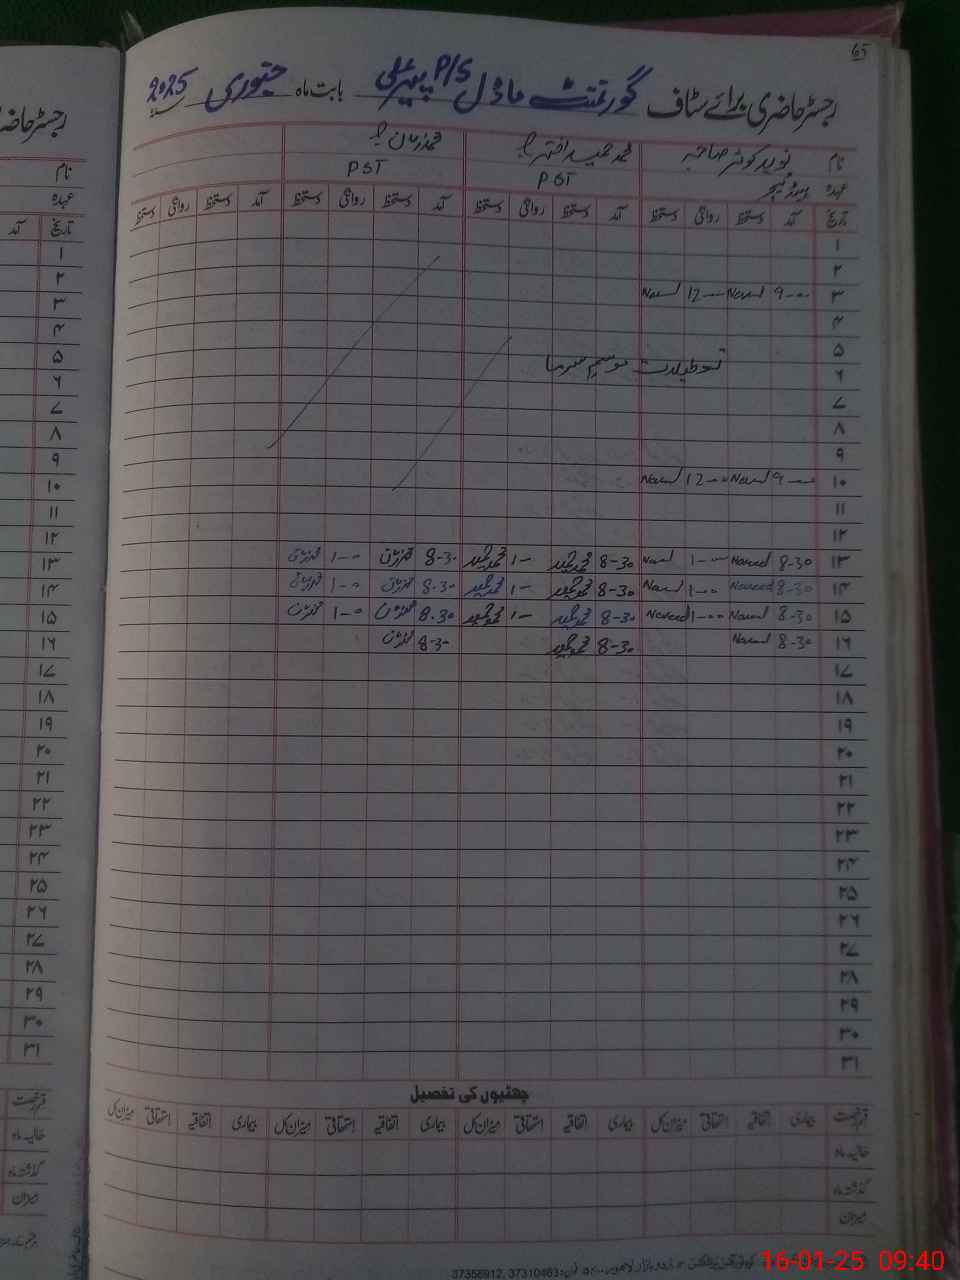 65
رجسٹر حاضری برائے سٹاف گورنمنٹ ماڈل P/S بابت ماہ جنوری 2025
نام نوید کوثر صاحبہ محمد حمید اختر
عہدہ PST PST
تاریخ آمد دستخط روانگی دستخط آمد دستخط روانگی دستخط آمد دستخط روانگی دستخط آمد دستخط روانگی دستخط
۱
۲
۳ 9-00 Naveed 12-00 Naveed
۴
۵
تعطیلات موسم سرما
۶
۷
۸
۹
۱۰ 9-00 Naveed 12-00 Naveed
۱۱
۱۲
۱۳ 8-30 Naveed 1-00 Naveed 8-30 محمد حمید 1- محمد حمید 8-30 1-00
۱۴ 8-30 Naveed 1-00 Naveed 8-30 محمد حمید 1- محمد حمید 8-30 1-00
۱۵ 8-30 Naveed 1-00 Naveed 8-30 محمد حمید 1- محمد حمید 8-30 1-00
۱۶ 8-30 Naveed 8-30 محمد حمید 8-30
۱۷
۱۸
۱۹
۲۰
۲۱
۲۲
۲۳
۲۴
۲۵
۲۶
۲۷
۲۸
۲۹
۳۰
۳۱
چھٹیوں کی تفصیل
قسم رخصت بیماری اتفاقیہ استحقاقی میزان کل بیماری اتفاقیہ استحقاقی میزان کل بیماری اتفاقیہ استحقاقی میزان کل بیماری اتفاقیہ استحقاقی میزان کل
حالیہ ماہ
گذشتہ ماہ
میزان
فون: 37310463, 37356912
16-01-25 09:40
رجسٹر حاضری
نام
عہدہ
تاریخ آمد
۱
۲
۳
۴
۵
۶
۷
۸
۹
۱۰
۱۱
۱۲
۱۳
۱۴
۱۵
۱۶
۱۷
۱۸
۱۹
۲۰
۲۱
۲۲
۲۳
۲۴
۲۵
۲۶
۲۷
۲۸
۲۹
۳۰
۳۱
قسم رخصت
حالیہ ماہ
گذشتہ ماہ
میزان